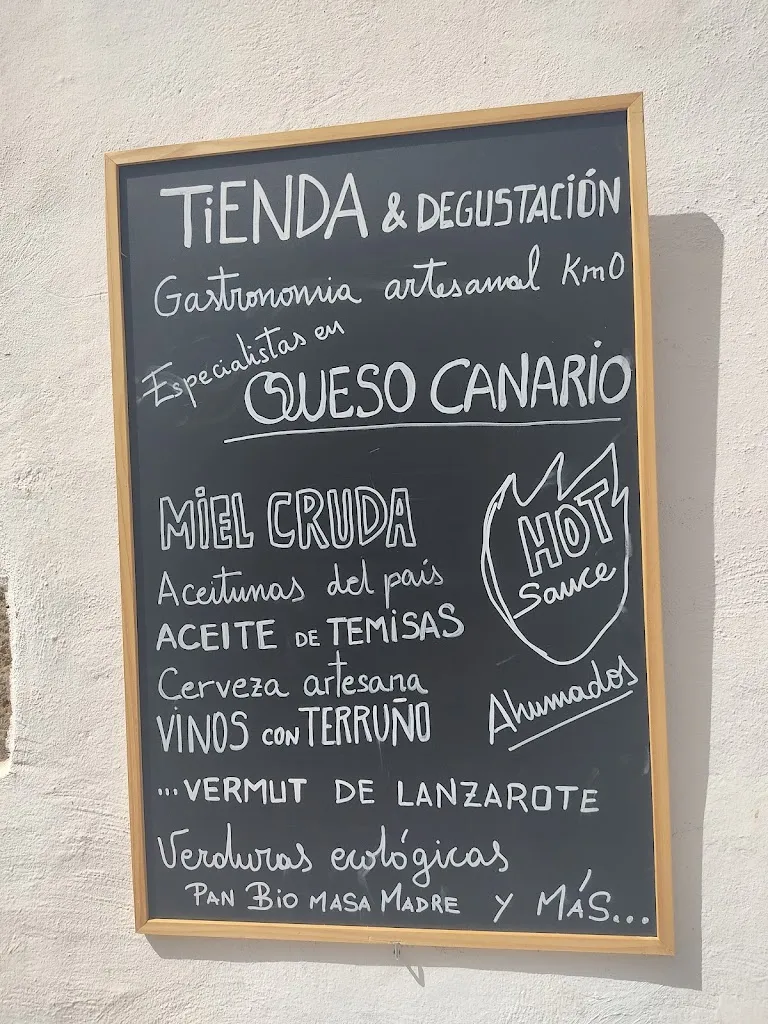 TiENDA & DEGUSTACIÓN
Gastronomia artesanal Km0
Especialistas en
QUESO CANARIO
MIEL CRUDA
HOT
Sauce
Aceitunas del país
ACEITE DE TEMISAS
Cerveza artesana
VINOS CON TERRUÑO
Ahumados
...VERMUT DE LANZAROTE
Verduras ecológicas
PAN BIO MASA MADRE Y MÁS...